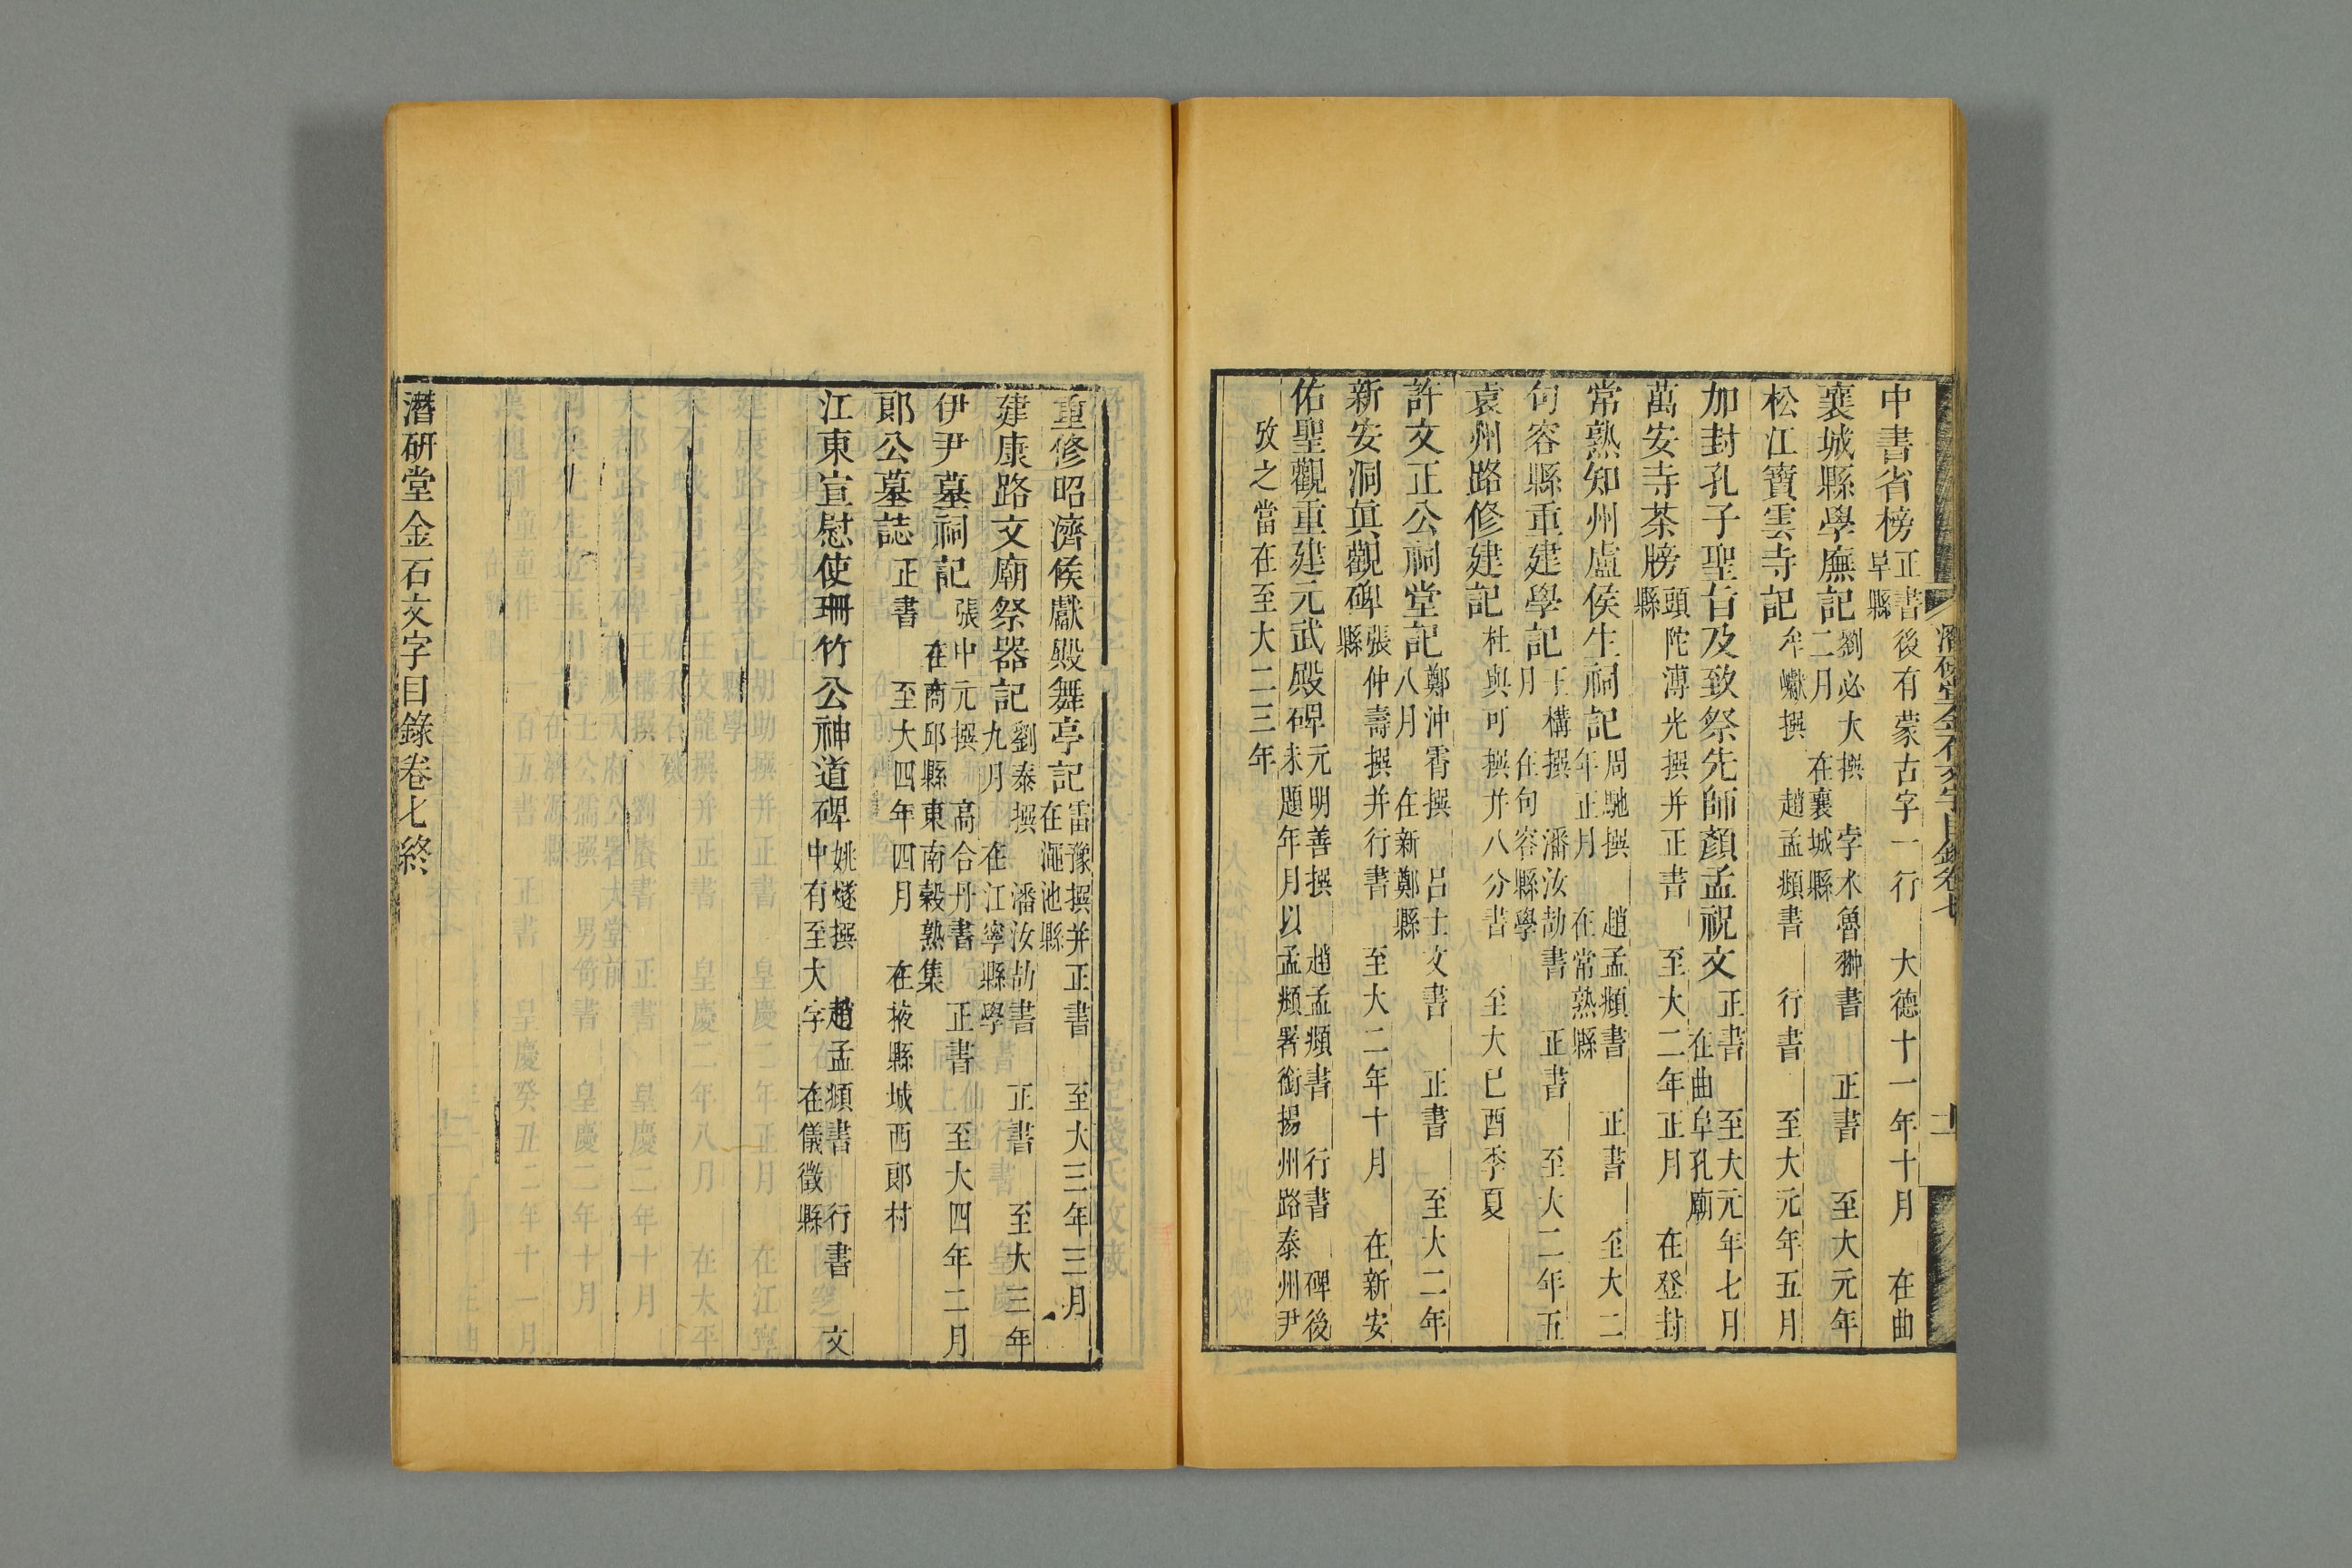 中書省榜正書 後有蒙古字一行 大德十一年十月 在曲阜縣
襄城縣學廡記劉必大撰 孛朮魯翀書 正書 至大元年二月 在襄城縣
松江寶雲寺記牟巘撰 趙孟頫書 行書 至大元年五月
加封孔子聖旨及致祭先師顏孟祝文正書 至大元年七月 在曲阜孔廟
萬安寺茶牓頭陀溥光撰并正書 至大二年正月 在登封縣
常熟知州盧侯生祠記周馳撰 趙孟頫書 正書 至大二年正月 在常熟縣
句容縣重建學記王構撰 潘汝劼書 正書 至大二年五月 在句容縣學
袁州路修建記杜與可撰并八分書 至大己酉季夏
許文正公祠堂記鄭沖霄撰 呂士文書 正書 至大二年八月 在新鄭縣
新安洞真觀碑張仲壽撰并行書 至大二年十月 在新安縣
佑聖觀重建元武殿碑元明善撰 趙孟頫書 行書 碑後未題年月以孟頫署銜揚州路泰州尹
攷之當在至大二三年
潛研堂金石文字目錄卷七 十一
重修昭濟侯獻殿舞亭記雷豫撰并正書 至大三年三月 在澠池縣
建康路文廟祭器記劉泰撰 潘汝劼書 正書 至大三年九月 在江寧縣學
伊尹墓祠記張中元撰 高合丹書 正書 至大四年二月 在商邱縣東南穀熟集
郎公墓誌正書 至大四年四月 在掖縣城西郎村
江東宣慰使珊竹公神道碑姚燧撰 趙孟頫書 行書 文中有至大字 在儀徵縣
潛研堂金石文字目錄卷七終